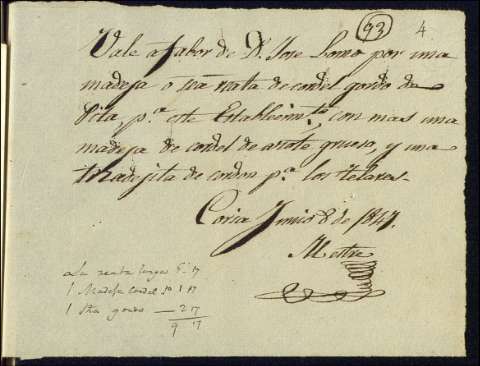 93 4
Vale a fabor de D. Jose Lomo por una
madeja o sea reata de cordel gordo de
Pita, p.a este Establecim.to con mas una
madeja de cordel de azote grueso, y una
Madejita de cordon p.a los telares.
Coria Junio 8 de 1847.
Mestre
La reata 6 17
1 Madeja cordel 1 17
1 Ytta gordo — 2 17
9 17